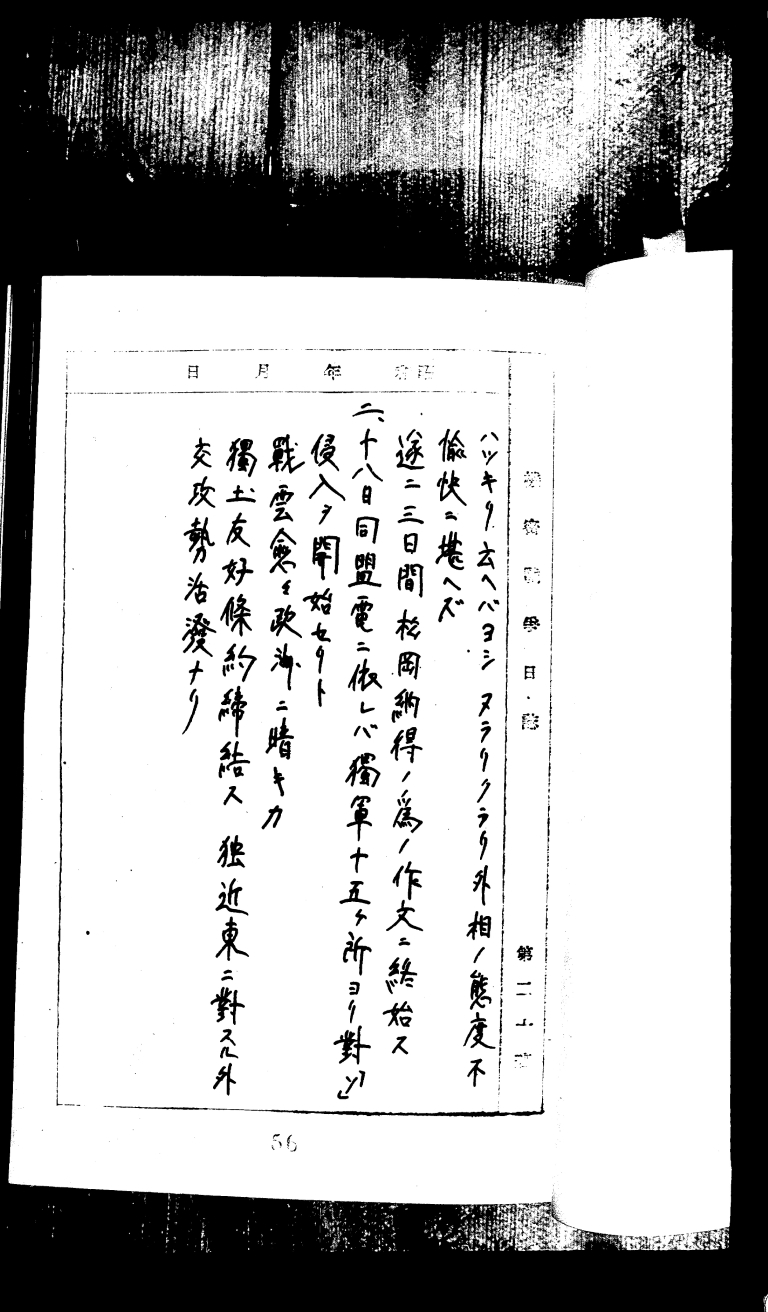 機密戰爭日誌
第二十班
昭和 年 月 日
ハツキリ云ヘバヨシ ヌラリクラリ外相ノ態度不
愉快ニ堪ヘズ
遂ニ三日間松岡納得ノ為ノ作文ニ終始ス
二、十八日同盟電ニ依レバ獨軍十五ヶ所ヨリ對「ソ」
侵入ヲ開始セリト
戰雲愈々欧洲ニ暗キカ
獨土友好條約締結ス 独近東ニ對スル外
交攻勢活潑ナリ
56